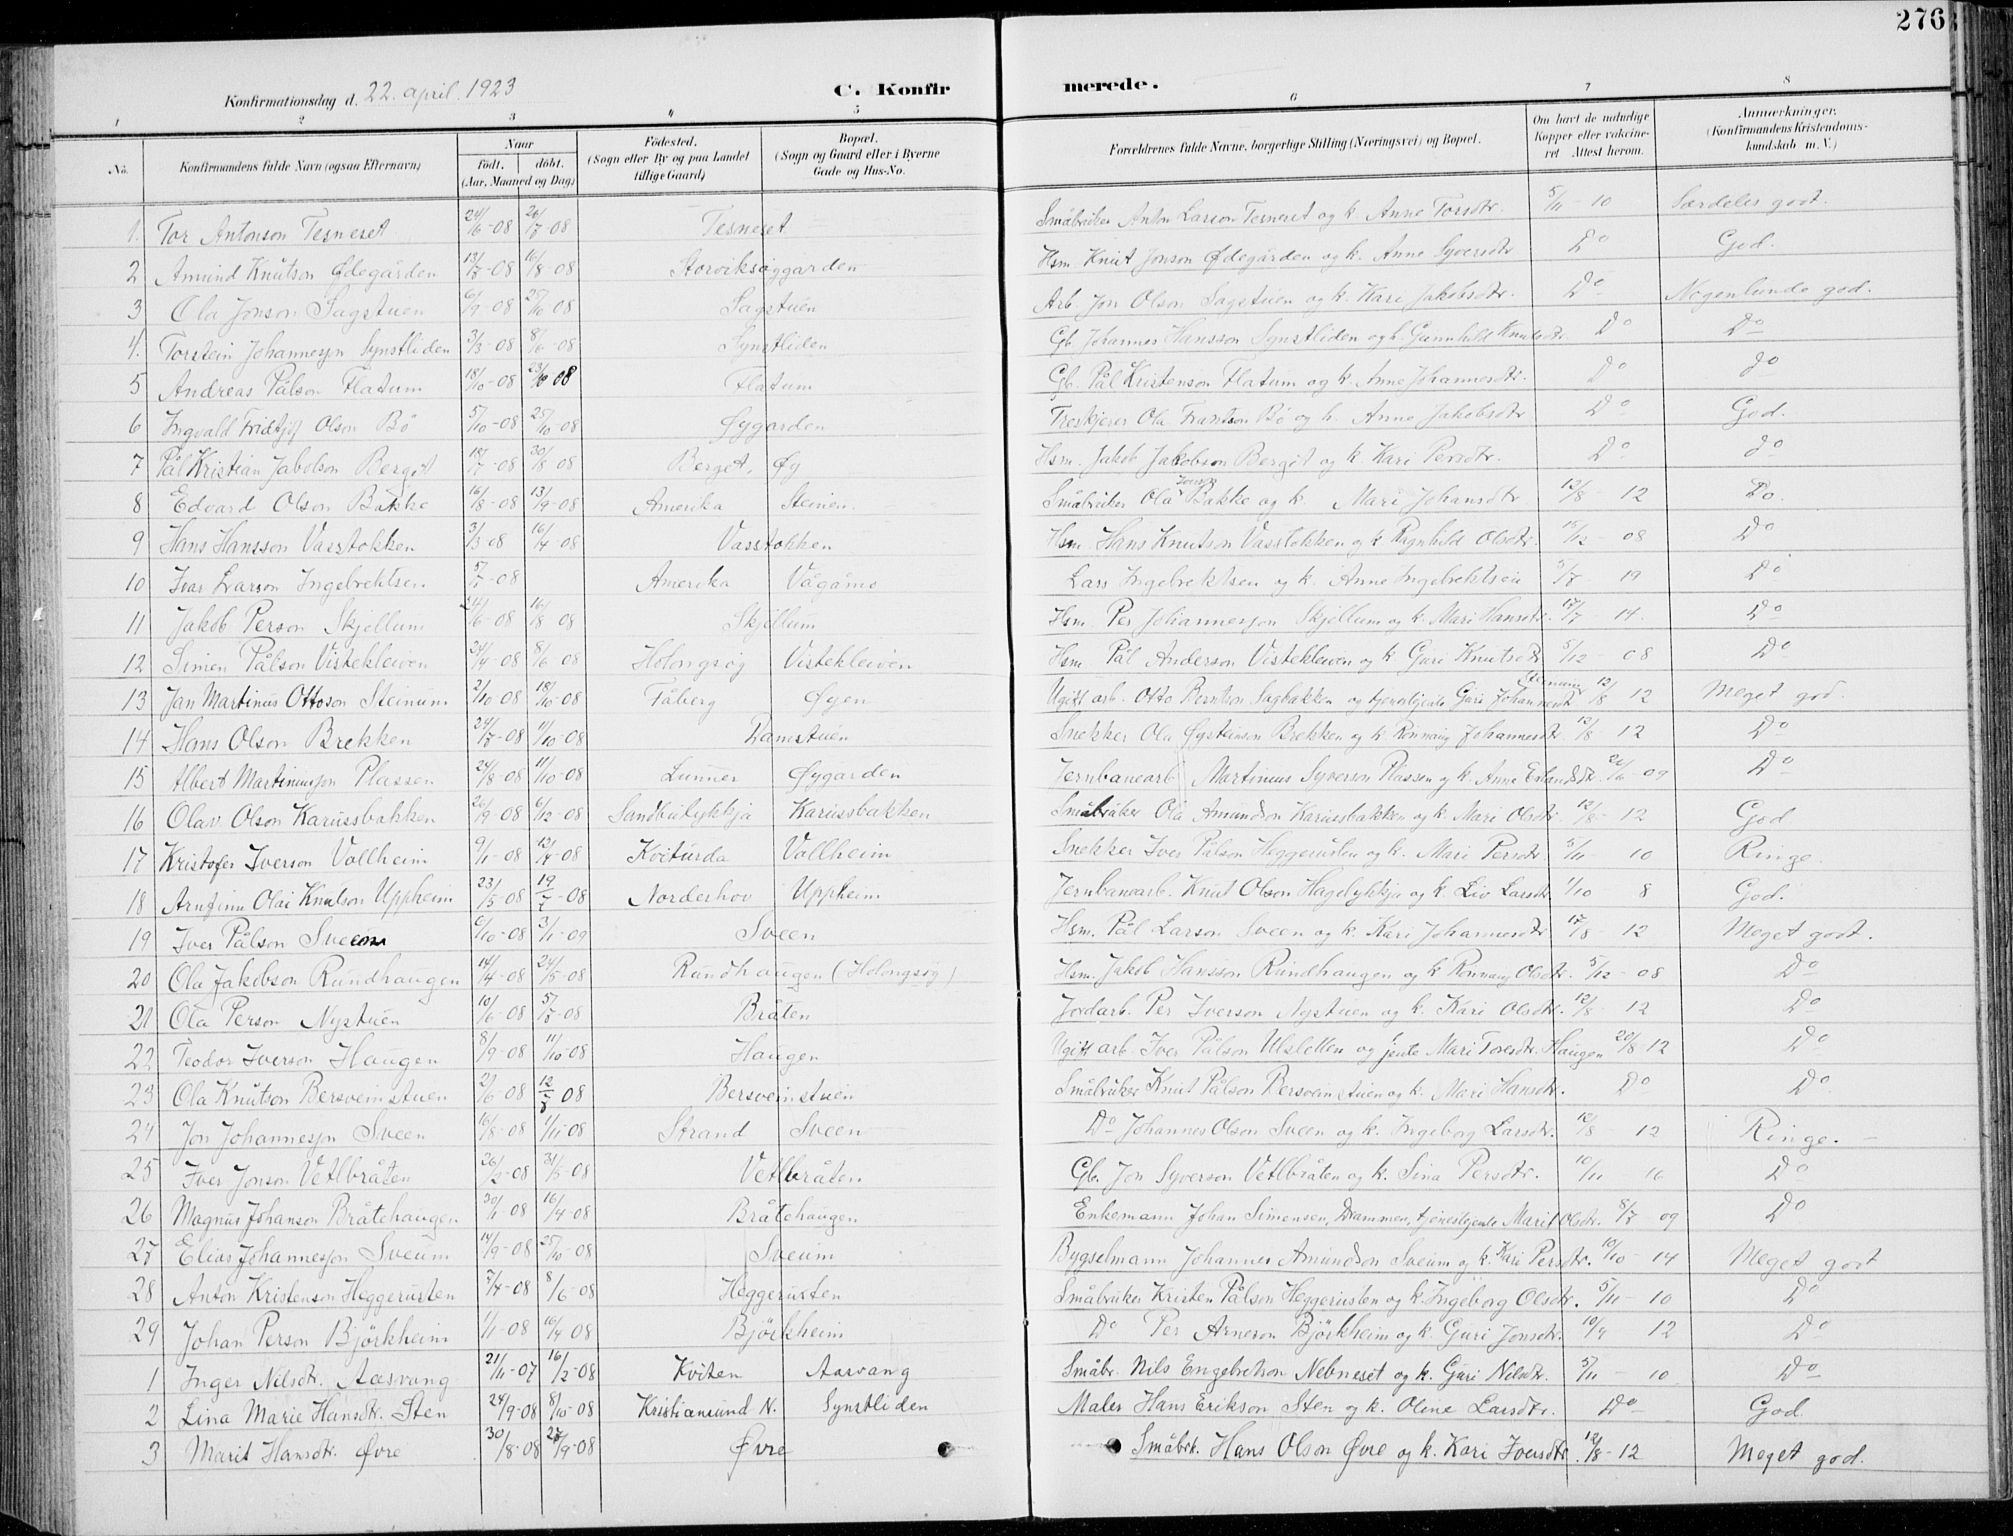 276
Konfirmationsdag d. 22. april. 1923 C. Konfirmerede.
1 2 3 4 5 6 7 8
No. Konfirmandens fulde Navn (ogsaa Efternavn) Naar født, døbt. (Aar, Maaned og Dag) Fødested. (Sogn eller By og paa Landet tillige Gaard) Bopæl. (Sogn og Gaard eller i Byerne Gade og Hus-No. Forældrenes fulde Navne, borgerlige Stilling (Næringsvei) og Bopæl. Om havt de naturlige Kopper eller vakcineret Attest herom. Anmærkninger. (Konfirmandens Kristendomskundskab m. V.)
1. Tor Antonson Tesneset 24/6-08 26/7-08 Tesneset Småbruker Anton Larson Tesneset og k. Anne Torsdtr. 5/11-10 Særdeles godt.
2 Amund Knutson Ødegården 13/7-08 16/8-08 Storviksøggarden Hsm. Knut Jonson Ødegården og k. Anne Syversdtr Do God.
3 Ola Jonson Sagstuen 6/9 08 25/10 08 Sagstuen Arb. Jon Olson Sagstuen og k. Kari Jakobsdtr. Do Nogenlunde god.
4. Torstein Johannesson Synstliden 3/3-08 8/6-08 Synstliden Gb. Johannes Hansson Synstliden og k. Gunnhild Knutsdtr Do Do
5 Andreas Pålson Flatum 18/10-08 23/10 08 Flatum Gb. Pål Kristenson Flatum og k. Anne Johannesdtr. Do do
6 Ingvald Fridtjof Olson Bö 5/10-08 25/10-08 Øygarden Treskjerer Ola Frantson Bö og k. Anne Jakobsdtr Do God.
7 Pål Kristian Jabolson Berget 18/7-08 30/8 08 Berget, Øy Hsm. Jakob Jakobson Berget og k. Kari Persdtr. Do do
8 Edvard Olson Bakke 16/8-08 13/9-08 Amerika Steinen. Småbruker Ola Bakke og k. Mari Johansdtr 12/8 12 Do.
9 Hans Hansson Vasstokken 3/3-08 16/4-08 Vasstokken Hsm. Hans Knutson Vasstokken og k Ragnhild Olsdtr. 15/12-08 Do
10 Ivar Larson Ingebrektsen 5/7-08 Amerika Vågåmo Lars Ingebrektsen og k. Anne Ingebrektsen 3/7 19 Do
11 Jakob Person Skjellum 24/6-08 16/8 08 Skjellum Hsm. Per Johannesson Skjellum og k. Mari Hansdtr. 17/7 14. Do
12 Simen Pålson Vistekleiven 24/4-08 8/6 08 Holongsøy Vistekleiven Hsm. Pål Anderson Vistekleiven og k Guri Knutsdtr 5/12-08 Do
13 Jan Martinus Ottoson Steinum 2/10 08 18/10-08 Fåberg Øyen Ugift arb. Otto Berntson Sagbakken og tjenestejente Guri Johannesdtr 12/8 12 Meget god.
14 Hans Olson Brekken 24/7-08 11/10-08 Lamstuen Snekker Ola Øysteinson Brekken og k. Rönnaug Johannesdtr 12/8 12 Do
15 Albert Martinusson Plassen 24/8-08 11/10-08 Lunner Øygarden Jernbanearb Martinus Syverson Plassen og k. Anne Erlandsdtr. 26/6 09 Do
16 Olav Olson Karussbakken 26/9-08 6/12-08 Sandbulykkja Karussbakken Småbruker Ola Amundson Karussbakken og k. Mari Olsdtr. 12/8-12 God
17 Kristofer Iverson Vollheim 9/1-08 12/4-08 Kviturda Vollheim Snekker Iver Pålson Heggerusten og k. Mari Persdtr. 5/11 10 Ringe.
18 Arnfinn Olai Knutson Uppheim 23/5-08 19/7-08 Norderhov Uppheim Jernbanearb. Knut Olson Hagelykkja og k. Liv Larsdtr 1/10 8 God.
19 Iver Pålson Sveen 6/10-08 3/1-09 Sveen Hsm. Pål Larson Sveen og k. Kari Johannesdtr 17/8-12 Meget godt.
20 Ola Jakobson Rundhaugen 14/4-08 24/5-08 Rundhaugen (Holongsøy) Hsm. Jakob Hansson Rundhaugen og k Rönnaug Olsdtr. 5/12-08 Do
21 Ola Person Nystuen 10/6-08 5/7-08 Bråten Jordarb. Per Iverson Nystuen og k. Kari Olsdtr. 12/8-12 Do
22 Teodor Iverson Haugen 8/9-08 11/10-08 Haugen Ugift arb. Iver Pålson Ulsletten og jente Mari Toresdtr. Haugen 20/8 12 Do
23 Ola Knutson Bersveinstuen 2/6-08 12/7 08 Bersveinstuen Småbruker Knut Pålson Bersveinstuen og k. Mari Hansdtr. Do Do
24 Jon Johannesson Sveen 16/8-08 1/11-08 Strand Sveen Do Johannes Olson Sveen og k. Ingeborg Larsdtr. 12/8-12 Ringe.-
25 Iver Jonson Vetlbråten 26/2-08 31/5-08 Vetlbråten Gb. Jon Syverson Vetlbråten og k. Sina Persdtr. 10/11 16 Do
26 Magnus Johanson Bråtehaugen 30/1-08 16/4-08 Bråtehaugen Enkemann Johan Simensen, Drammen, tjenestejente Marit Olsdtr. 8/7 09 Do
27 Elias Johannesson Sveum 14/9-08 25/10-08 Sveum Bygselmann Johannes Amundson Sveum og k. Kari Persdtr. 10/10-14 Meget godt
28 Anton Kristenson Heggerusten 7/4-08 8/6-08 Heggerusten Småbruker Kristen Pålson Heggerusten og k. Ingeborg Olsdtr. 5/11-10 Do
29 Johan Person Björkheim 1/1-08 16/4 08 Björkheim Do Per Arneson Björkheim og k. Guri Jonsdtr. 10/9 12 Do
1 Inger Nilsdtr. Aasvang 21/11-07 16/2-08 Kviten Aasvang Småbr. Nils Engebretson Nebneset og k. Guri Nilsdtr. 5/11-10 Do
2 Lina Marie Hansdtr. Sten 24/9-08 8/10-08 Kristiansund N. Synstliden Maler Hans Erikson Sten og k. Oline Larsdtr. Do God.
3 Marit Hansdtr. Øvre 30/8-08 27/9-08 Øvre Småbrk. Hans Olson Øvre og k. Kari Iversdtr. 12/8-12 Meget god.